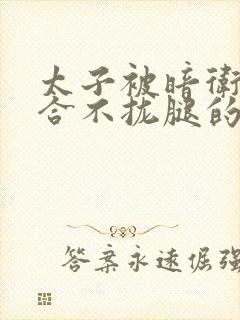 太子被暗卫
合不拢腿的
答案永远倔强